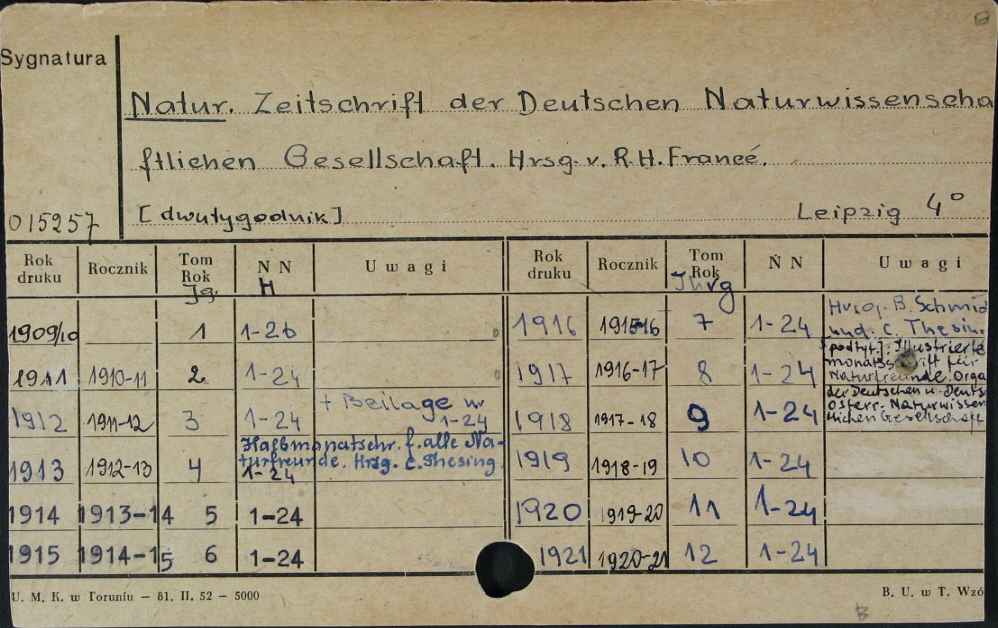 Sygnatura
Natur. Zeitschrift der Deutschen Naturwissenscha
ftlichen Gesellschaft. Hrsg. v. R.H. Francé.
015257 [dwutygodnik] Leipzig 4°
Rok druku Rocznik Tom Rok Jg. N N H Uwagi
1909/10 1 1-26
1911 1910-11 2 1-24
1912 1911-12 3 1-24 + Beilage nr 1-24
1913 1912-13 4 Halbmonatschr. f. alle Na-
turfreunde. Hrsg. C. Thesing
1-24
1914 1913-14 5 1-24
1915 1914-15 6 1-24
Rok druku Rocznik Tom Rok N N Uwagi
1916 1915-16 7 1-24 Hrsg. B. Schmid
und. C. Thesing
1917 1916-17 8 1-24 [podtyt.]: Illustrierte
Naturfreunde. Orga
1918 1917-18 9 1-24 der Deutschen u. Deuts
österr. Naturwissen
lichen Gesellschaft
1919 1918-19 10 1-24
1920 1919-20 11 1-24
1921 1920-21 12 1-24
U. M. K. w Toruniu — 81. II. 52 — 5000 B. U. w T. Wzó